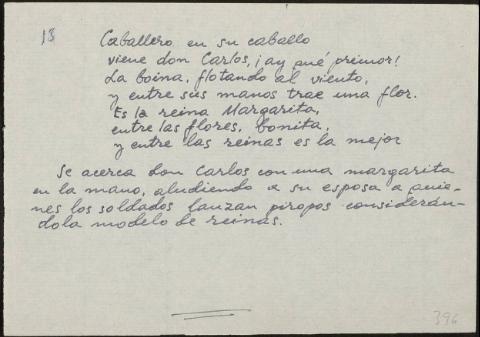 13
Caballero en su caballo
viene don Carlos, ¡ay qué primor!
La boina, flotando al viento,
y entre sus manos trae una flor.
Es la reina Margarita,
entre las flores, bonita,
y entre las reinas es la mejor
Se acerca don Carlos con una margarita
en la mano, aludiendo a su esposa a quie-
nes los soldados lanzan piropos considerán-
dola modelo de reinas.
396